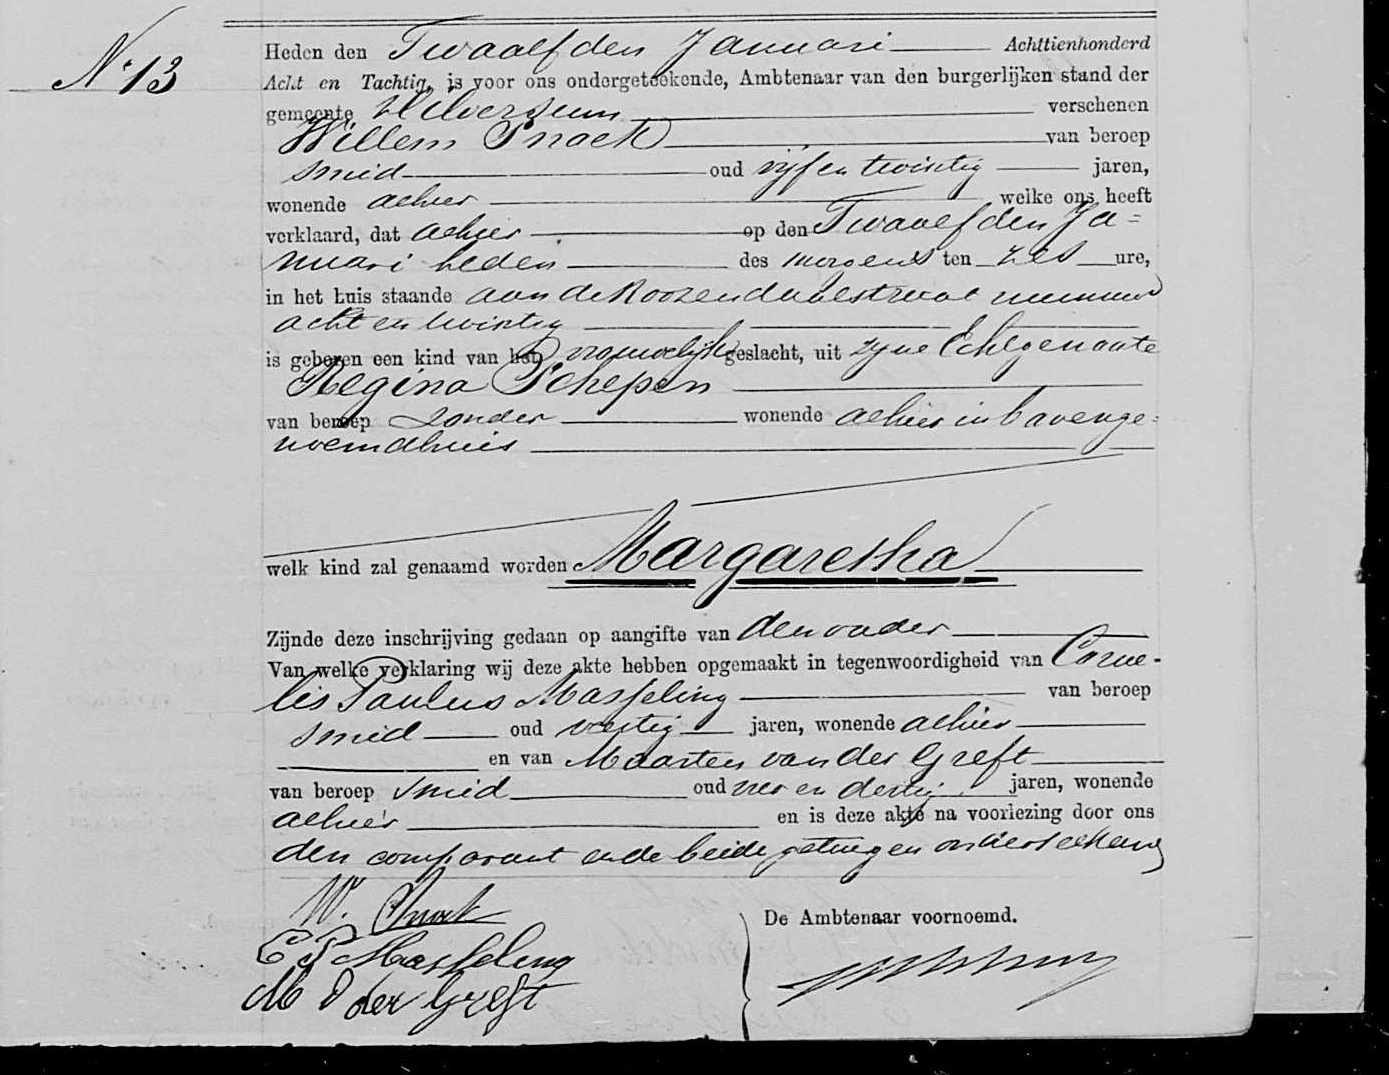 N. 13
Heden den Twaalfden Januari Achttienhonderd
Acht en Tachtig, is voor ons ondergeteekende, Ambtenaar van den burgerlijken stand der
gemeente Hilversum verschenen
Willem Snoek van beroep
smid oud vijf en twintig jaren,
wonende alhier welke ons heeft
verklaard, dat alhier op den Twaalfden Ja=
nuari heden des morgens ten zes ure,
in het huis staande aan de Roozendaalstraat nummer
acht en twintig
is geboren een kind van het vrouwelijk geslacht, uit zijne Echtgenoote
Regina Schepen
van beroep zonder wonende alhier in bovenge=
noemd huis
welk kind zal genaamd worden Margaretha
Zijnde deze inschrijving gedaan op aangifte van den vader
Van welke verklaring wij deze akte hebben opgemaakt in tegenwoordigheid van Corne-
lis Paulus Masseling van beroep
smid oud veertig jaren, wonende alhier
en van Maarten van der Greft
van beroep smid oud vier en dertig jaren, wonende
alhier en is deze akte na voorlezing door ons
den comparant en de beide getuigen onderteekend
W. Snoek
C P Masseling
M v der Greft
De Ambtenaar voornoemd.